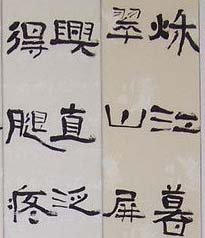 秋江暮
翠山屏
興直泛
得腿疼